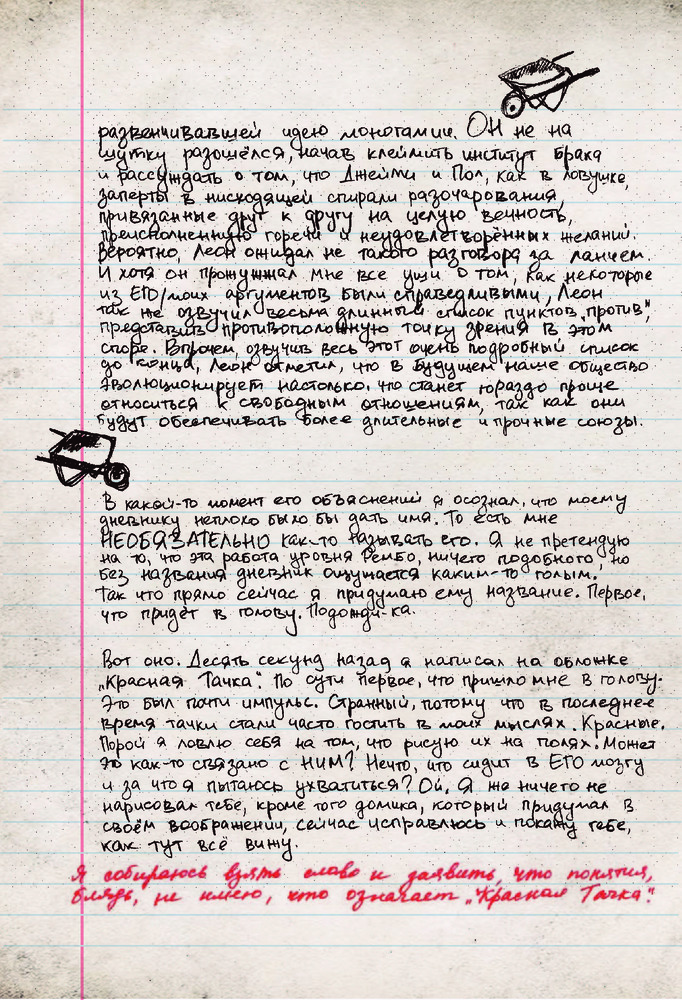 развенчивавшей идею моногамии. ОН не на
шутку разошёлся, начав клеймить институт брака
и рассуждать о том, что Джейми и Пол, как в ловушке,
заперты в нисходящей спирали разочарования,
привязанные друг к другу на целую вечность,
преисполненную горечи и неудовлетворённых желаний.
Вероятно, Леон ожидал не такого разговора за ланчем.
И хотя он прожужжал мне все уши о том, как некоторые
из ЕГО/моих аргументов были справедливыми, Леон
так же озвучил весьма длинный список пунктов „против",
представив противоположную точку зрения в этом
споре. Впрочем, озвучив весь этот очень подробный список
до конца, Леон отметил, что в будущем наше общество
эволюционирует настолько, что станет гораздо проще
относиться к свободным отношениям, так как они
будут обеспечивать более длительные и прочные союзы.
В какой-то момент его объяснений я осознал, что моему
дневнику неплохо было бы дать имя. То есть мне
НЕОБЯЗАТЕЛЬНО как-то называть его. Я не претендую
на то, что эта работа уровня Рембо, ничего подобного, но
без названия дневник ощущается каким-то голым.
Так что прямо сейчас я придумаю ему название. Первое,
что придёт в голову. Подожди-ка.
Вот оно. Десять секунд назад я написал на обложке
„Красная Тачка". По сути первое, что пришло мне в голову.
Это был почти импульс. Странный, потому что в последнее
время тачки стали часто гостить в моих мыслях. Красные.
Порой я ловлю себя на том, что рисую их на полях. Может
это как-то связано с НИМ? Нечто, что сидит в ЕГО мозгу
и за что я пытаюсь ухватиться? Ой, я же ничего не
нарисовал тебе, кроме того домика, который придумал в
своём воображении, сейчас исправлюсь и покажу тебе,
как тут всё вижу.
Я собираюсь взять слово и заявить, что понятия,
блядь, не имею, что означает „Красная Тачка".